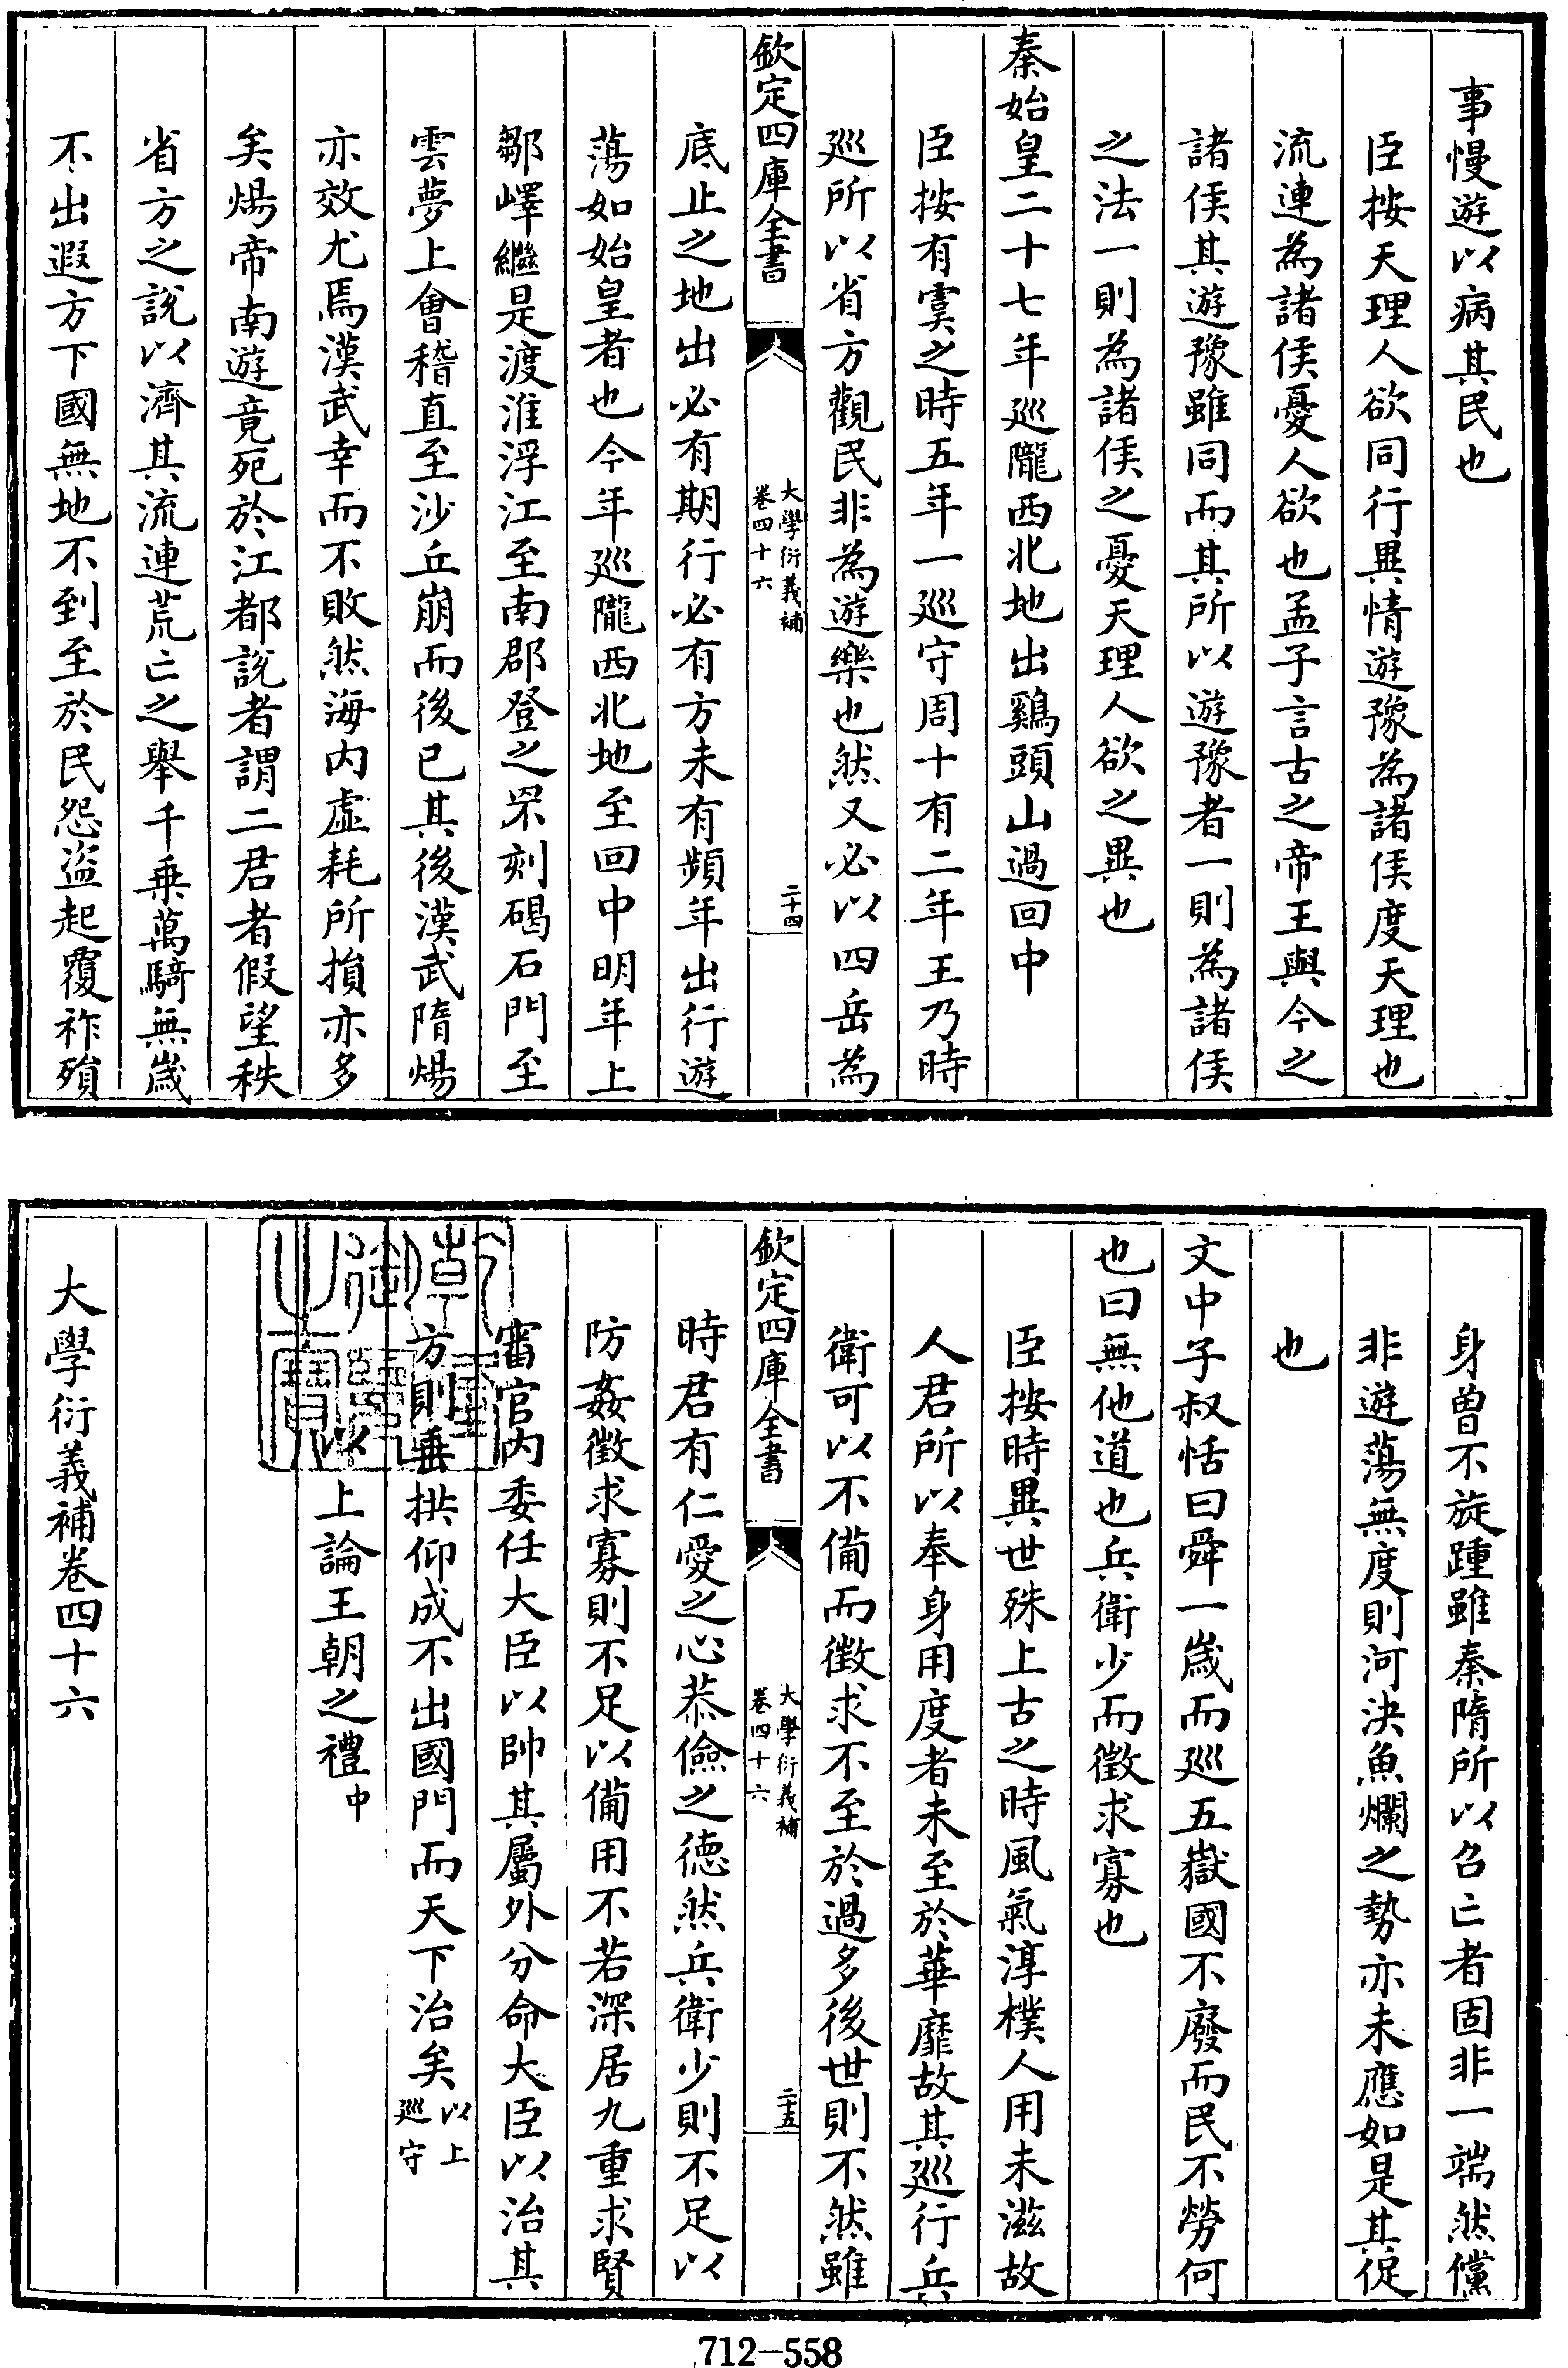 事慢遊以病其民也
臣按天理人欲同行異情遊豫為諸侯度天理也
流連為諸侯憂人欲也孟子言古之帝王與今之
諸侯其遊豫雖同而其所以遊豫者一則為諸侯
之法一則為諸侯之憂天理人欲之異也
秦始皇二十七年巡隴西北地出鷄頭山過回中
臣按有虞之時五年一巡守周十有二年王乃時
巡所以省方觀民非為遊樂也然又必以四岳為
欽定四庫全書
大學衍義補
卷四十六
二十四
底止之地出必有期行必有方未有頻年出行遊
蕩如始皇者也今年巡隴西北地至回中明年上
鄒嶧繼是渡淮浮江至南郡登之罘刻碣石門至
雲夢上會稽直至沙丘崩而後已其後漢武隋煬
亦效尤焉漢武幸而不敗然海内虛耗所損亦多
矣煬帝南遊竟死於江都說者謂二君者假望秩
省方之說以濟其流連荒亡之舉千乗萬騎無歲
不出遐方下國無地不到至於民怨盜起覆祚殞
身曽不旋踵雖秦隋所以召亡者固非一端然儻
非遊蕩無度則河決魚爛之勢亦未應如是其促
也
文中子叔恬曰舜一歲而巡五嶽國不廢而民不勞何
也曰無他道也兵衛少而徵求寡也
臣按時異世殊上古之時風氣淳樸人用未滋故
人君所以奉身用度者未至於華靡故其巡行兵
衛可以不備而徴求不至於過多後世則不然雖
欽定四庫全書
大學衍義補
卷四十六
二十五
時君有仁愛之心恭儉之德然兵衛少則不足以
防姦徵求寡則不足以備用不若深居九重求賢
審官内委任大臣以帥其屬外分命大臣以治其
方則垂拱仰成不出國門而天下治矣以上
巡守
以上論王朝之禮中
大學衍義補卷四十六
乾隆御覽之寶
712-558